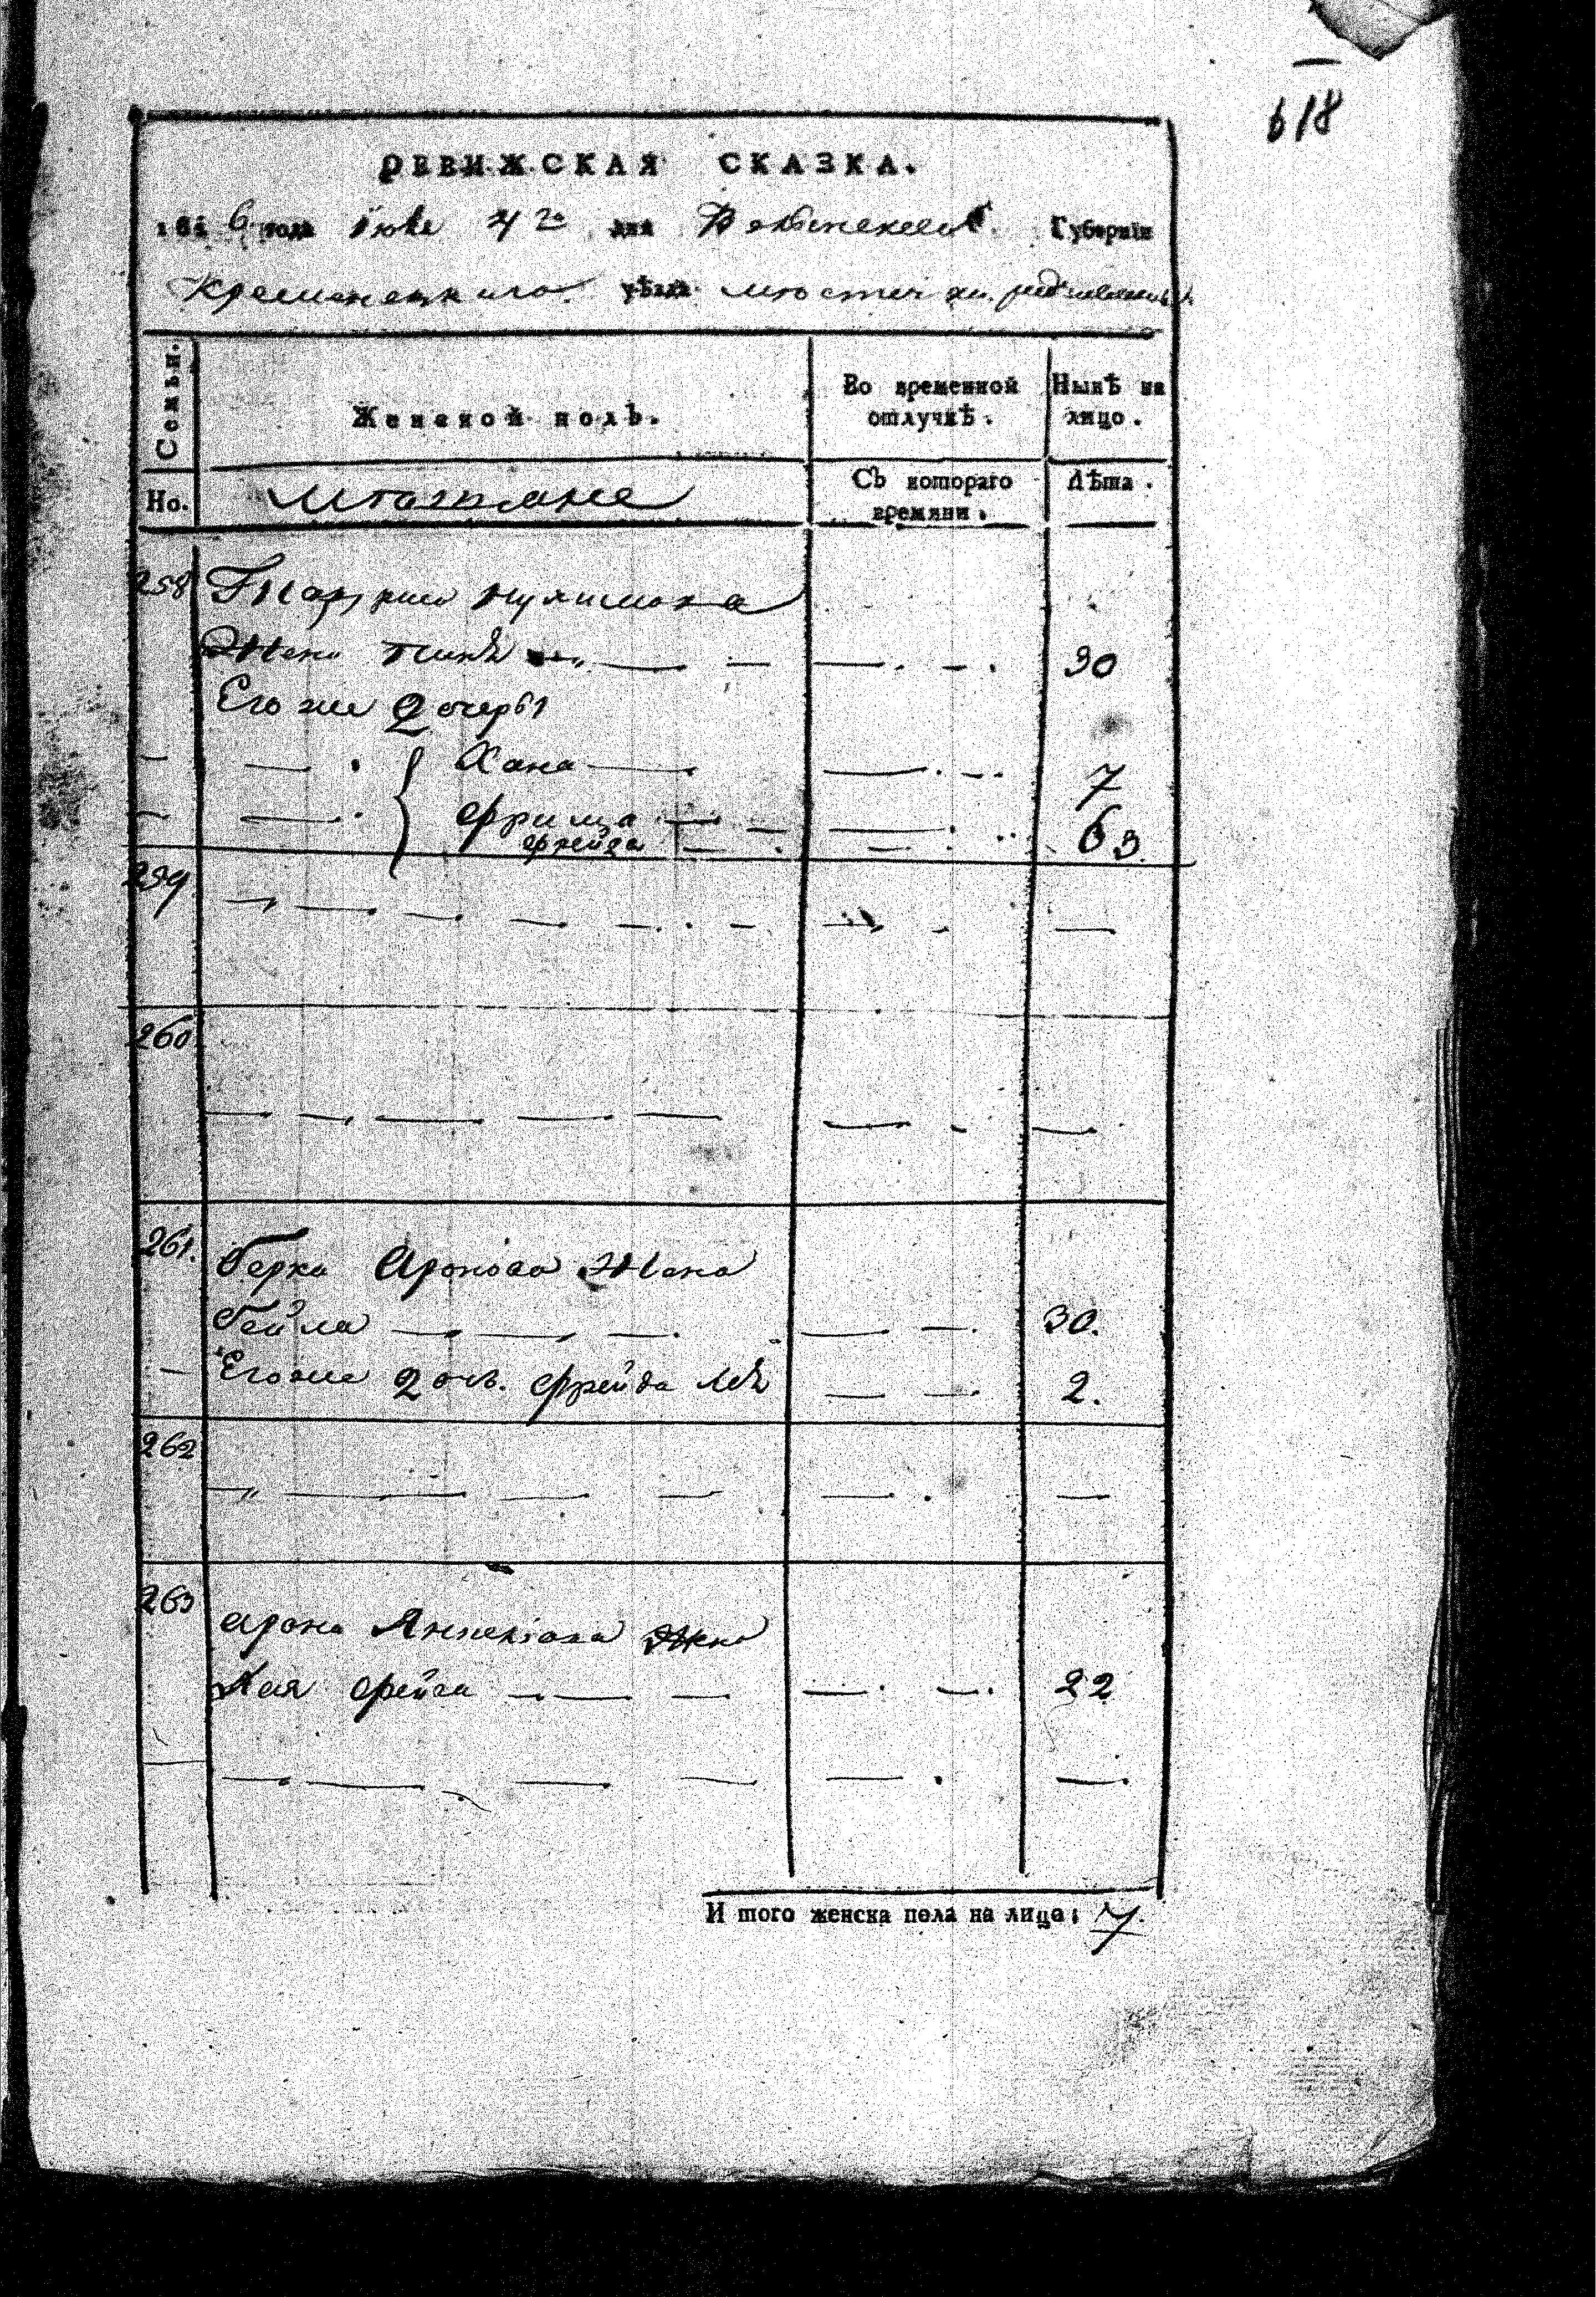 618
РЕВИЖСКАЯ СКАЗКА.
1816 года Июня 4го дня Волынской Губернїи
Кременецкаго уѣзда местечка
Семьи.
Женской полъ.
Во временной отлучкѣ.
Нынѣ на лицо.
Но.
мѣщане
Съ котораго времяни.
Лѣта.
258
Жена 30
Его же 2 дочеры
Хана 7
Фрима 6
Фрейда 3
259
260
261. Берка Аронова Жена
Бейла 30.
Его же 2 доч. Фрейда Леѣ 2.
262
263 Арона Жена
Хая Фрейга 22
И того женска пола на лицо: 7.